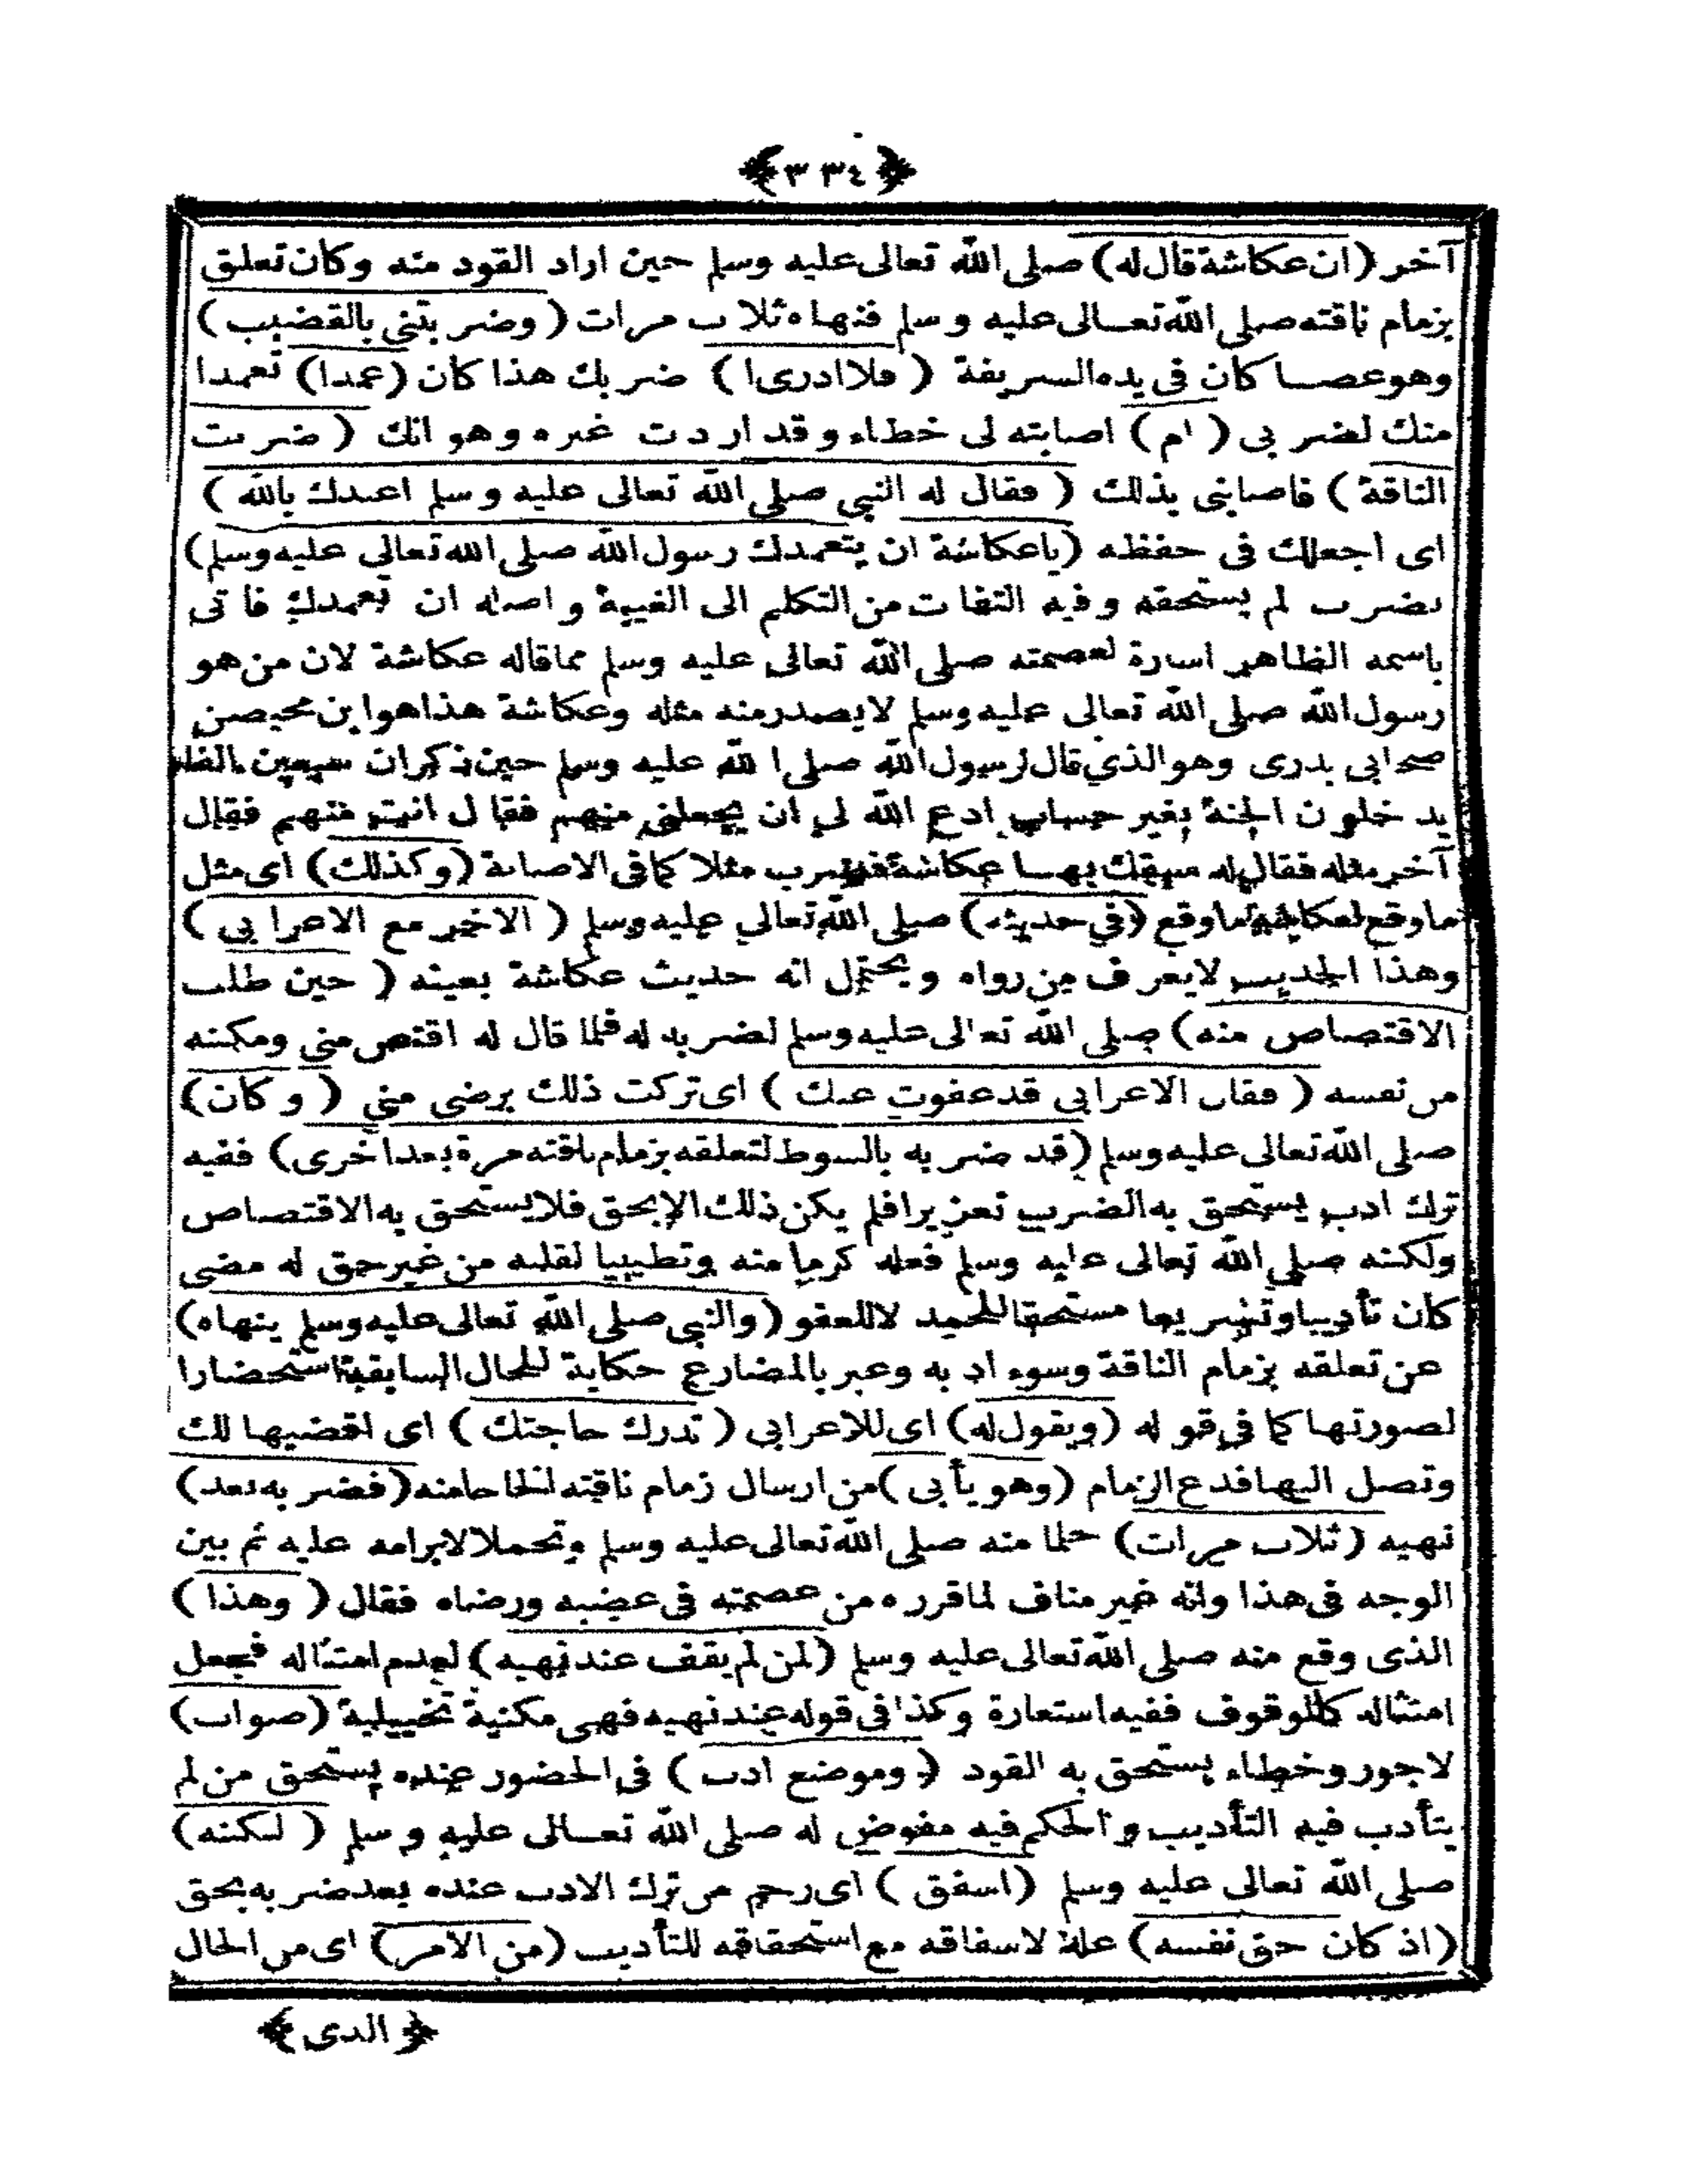 ﴿ ٣٣٤ ﴾
آخر (ان عكاشة قال له) صلى الله تعالى عليه وسلم حين اراد القود منه وكان تعلق
بزمام ناقته صلى الله تعالى عليه وسلم فنهاه ثلاث مرات (وضربتنى بالقضيب)
وهو عصا كان فى يده الشريفة (فلا ادرى ا) ضربك هذا كان (عمدا) تعمدا
منك لضربى (ام) اصابته لى خطاء وقد اردت غيره وهو انك (ضربت
الناقة) فاصابنى بذلك (فقال له النبي صلى الله تعالى عليه وسلم اعيذك بالله)
اى اجعلك فى حفظه (ياعكاشة ان يتعمدك رسول الله صلى الله تعالى عليه وسلم)
بضرب لم يستحقه وفيه التفات من التكلم الى الغيبة واصله ان تعمدك فاتى
باسمه الظاهر اشارة لعصمته صلى الله تعالى عليه وسلم مما قاله عكاشة لان من هو
رسول الله صلى الله تعالى عليه وسلم لايصدر منه مثله وعكاشة هذا هو ابن محيصن
صحابى بدرى وهو الذي قال لرسول الله صلى الله عليه وسلم حين ذكر ان سبعين الفا
يدخلون الجنة بغير حساب ادع الله لى ان يجعلنى منهم فقال انت منهم فقال
آخر مثله فقال له سبقك بها عكاشة فضرب مثلا كما فى الاصابة (وكذلك) اى مثل
ما وقع لعكاشة ما وقع (في حديثه) صلى الله تعالي عليه وسلم (الاخير مع الاعرابى)
وهذا الحديث لايعرف من رواه ويحتمل انه حديث عكاشة بعينه (حين طلب
الاقتصاص منه) صلى الله تعالى عليه وسلم لضربه له فلما قال له اقتص مني ومكنه
من نفسه (فقال الاعرابي قد عفوت عنك) اى تركت ذلك برضى مني (وكان)
صلى الله تعالى عليه وسلم (قد ضربه بالسوط لتعلقه بزمام ناقته مرة بعد اخرى) ففيه
ترك ادب يستحق به الضرب تعزيرا فلم يكن ذلك الا بحق فلا يستحق به الاقتصاص
ولكنه صلى الله تعالى عليه وسلم فعله كرما منه وتطييبا لقلبه من غير حق له مضى
كان تأديبا وتشريعا مستحقا للحمد لا للعفو (والنبي صلى الله تعالى عليه وسلم ينهاه)
عن تعلقه بزمام الناقة وسوء ادبه وعبر بالمضارع حكاية للحال السابقة استحضارا
لصورتها كما فى قوله (ويقول له) اى للاعرابي (تدرك حاجتك) اى اقضيها لك
وتصل اليها فدع الزمام (وهو يأبى) من ارسال زمام ناقته الحاحا منه (فضربه بعد)
نهيه (ثلاث مرات) حلما منه صلى الله تعالى عليه وسلم وتحملا لابرامه عليه ثم بين
الوجه فى هذا وانه غير مناف لما قرره من عصمته فى غضبه ورضاه فقال (وهذا)
الذى وقع منه صلى الله تعالى عليه وسلم (لمن لم يقف عند نهيه) لعدم امتثاله فجعل
امتثاله كالوقوف ففيه استعارة وكذا فى قوله عند نهيه فهى مكنية تخييلية (صواب)
لاجور وخطاء يستحق به القود (وموضع ادب) فى الحضور عنده يستحق من لم
يتأدب فيه التأديب والحكم فيه مفوض له صلى الله تعالى عليه وسلم (لكنه)
صلى الله تعالى عليه وسلم (اشفق) اى رحم من ترك الادب عنده بعد ضربه بحق
(اذ كان حق نفسه) علة لاشفاقه مع استحقاقه للتأديب (من الامر) اى من الحال
﴿ الذى ﴾